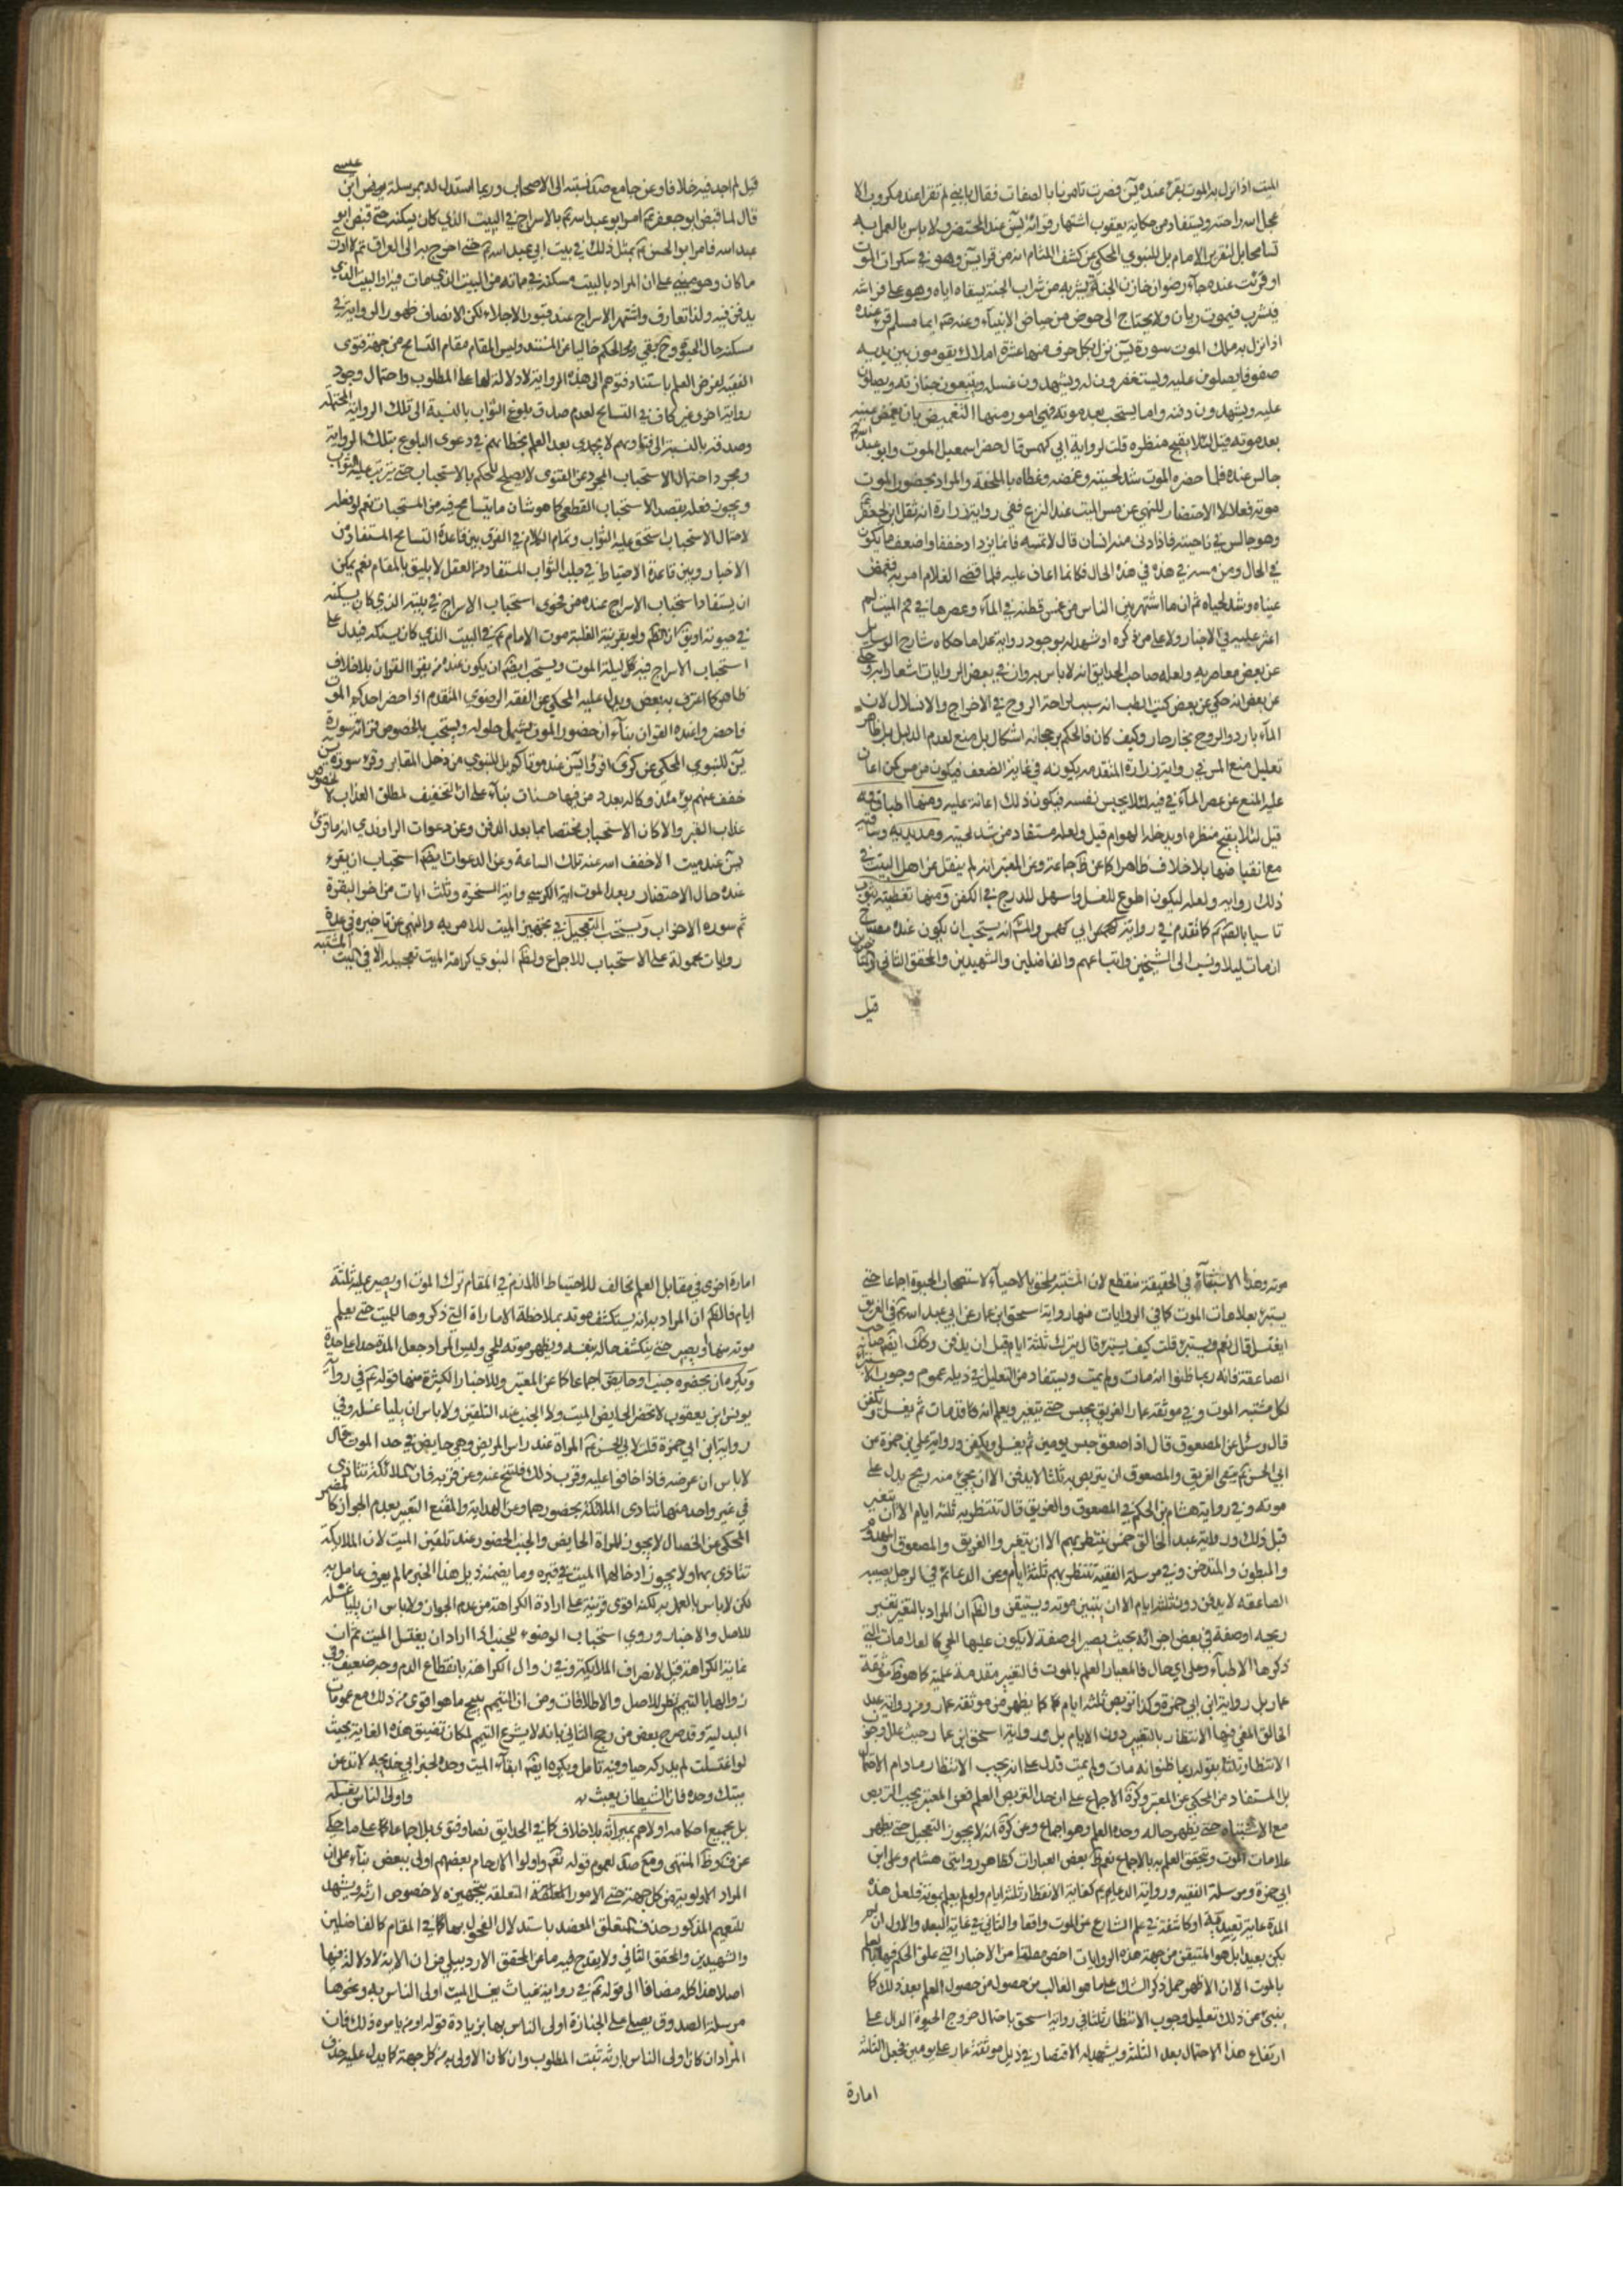 الميت اذا نزل به الموت يقرء عنده يس فصرت تامرنا بالصافات فقال يا بني لم تقرا عند مكروب الا
عجل الله راحته ويستفاد من حكاية يعقوب اشتهار قرائة يس عند المحتضر ولا باس بالعمل به
تسامحا بل لتقرير الامام بل للنبوي المحكي عن كشف اللثام انه من قرا يس وهو في سكرات الموت
او قرئت عنده جآء رضوان خازن الجنة بشربة من شراب الجنة يسقاه اياه وهو على فراشه
فيشرب فيموت ريان ولا يحتاج الى حوض من حياض الانبيآء وعنه ايما مسلم قرء عنده
اذا نزل به ملك الموت سورة يس نزل بكل حرف منها عشرة املاك يقومون بين يديه
صفوفا يصلون عليه ويستغفرون له ويشهدون غسله ويتبعون جنازته ويصلون
عليه ويشهدون دفنه واما يستحب بعد موته فهي امور منها التغميض بان يغمض عينيه
بعد موته قيل لئلا يقبح منظره قلت لرواية ابي كهمس قال حضر اسمعيل الموت وابو عبد الله
جالس عنده فلما حضره الموت شد لحييه وغمضه وغطاه بالملحفة والمراد بحضور الموت
موته فعلا لا الاحتضار للنهي عن مس الميت عند النزع ففي رواية زرارة انه ثقل ابن لجعفر
وهو جالس في ناحية فاذا دنى منه انسان قال لا تمسه فانما يزداد ضعفا واضعف ما يكون
في الحال ومن مسه في هذه الحال فكانما اعان عليه فلما قضى الغلام امر به فغمض
عيناه وشد لحياه ثم ان ما اشتهر بين الناس من غمس قطنة في المآء وعصرها في فم الميت لم
اعثر عليه في الاخبار ولا على من ذكره او شهد له بوجود رواية عدا ما حكاه شارح الوسايل
عن بعض معاصريه ولعله صاحب الحدايق انه لا باس به وان في بعض الروايات اشعارا به وحكى
عن بعض انه حكي عن بعض كتب الطب انه سبب لراحة الروح في الاخراج والانسلال لان
المآء بارد والروح بخار حار وكيف كان فالحكم برجحانه اشكال بل منع لعدم الدليل بل ظاهر
تعليل منع المس في رواية زرارة المتقدمة بكونه في غاية الضعف فيكون من مس كمن اعان
عليه المنع عن عصر المآء في فيه لئلا يحبس نفسه فيكون ذلك اعانة عليه ومنها اطباق فيه
قيل لئلا يقبح منظره او يدخله الهوام قيل ولعله مستفاد من شد لحييه ومد يديه وساقيه
مع انقباضها بلا خلاف ظاهرا كما عن جماعة وعن المعتبر انه لم ينقل عن اهل البيت في
ذلك رواية ولعله ليكون اطوع للغسل واسهل للدرج في الكفن ومنها تغطيته بثوب
تاسيا بالصادق كما تقدم في رواية ابي كهمس والمشهور انه يستحب ان يكون عنده مصباح
ان مات ليلا ونسب الى الشيخين واتباعهم والفاضلين والشهيدين والمحقق الثاني
قيل
قيل لم اجد فيه خلافا وعن جامع صد نسبته الى الاصحاب وربما استدل له بمرسلة عيسى
قال لما قبض ابو جعفر ع امر ابو عبد الله ع بالاسراج في البيت الذي كان يسكنه حتى قبض ابو
عبد الله فامر ابو الحسن ع بمثل ذلك في بيت ابي عبد الله ع حتى اخرج به الى العراق ثم لا ادري
ما كان وهو مبني على ان المراد بالبيت مسكنه في حياته من البيت الذي مات فيه او البيت الذي
يدفن فيه ولذا تعارف واشتهر الاسراج عند قبور الاجلاء لكن الانصاف ظهور الرواية في
مسكنه حال الحيوة وح بقي الحكم خاليا عن المستند وليس المقام مقام التسامح من جهة فتوى
الفقيه لفرض العلم باستناد فتوهم الى هذه الرواية لا دلالة لها على المطلوب واحتمال وجود
رواية اخرى غير كاف في التسامح لعدم صدق بلوغ الثواب بالنسبة الى تلك الرواية المحتملة
وصدقه بالنسبة الى فتاويهم لا يجدي بعد العلم بخطائهم في دعوى البلوغ بتلك الرواية
ومجرد احتمال الاستحباب المجرد عن الفتوى لا يصلح للحكم بالاستحباب حتى يترتب عليه الثواب
ويجوز فعله بقصد الاستحباب القطعي كما هو شان ما يتسامح فيه من المستحبات نعم لو فعله
لاحتمال الاستحباب استحق عليه الثواب وتمام الكلام في الفرق بين قاعدة التسامح المستفاد من
الاخبار وبين قاعدة الاحتياط في جلب الثواب المستفاد من العقل لا يليق بالمقام نعم يمكن
ان يستفاد استحباب الاسراج عنده من فحوى استحباب الاسراج في بيته الذي كان يسكنه
في حيوته ولو بقرينة الغلبة موت الامام ع في البيت الذي كان يسكنه فيدل على
استحباب الاسراج فيه كل ليلة الموت ويستحب ايضا ان يكون عنده من يقرء القران بلا خلاف
ظاهر كما اعترف به بعض ويدل عليه المحكي عن الفقه الرضوي المتقدم اذا حضر احدكم الموت
فاحضروا عنده القران بنآء ان حضور الموت يشمل حلوله ويستحب بالخصوص قرائة سورة
يس للنبوي المحكي عن كرى اقرؤا يس عند موتاكم وبل للنبوي من دخل المقابر وقرء سورة يس
خفف عنهم يومئذ وكان له بعدد من فيها حسنات بنآء على ان التخفيف لمطلق العذاب لا لخصوص
عذاب القبر والا كان الاستحباب مختصا بما بعد الدفن وعن دعوات الراوندي انه ما قرئ
يس عند ميت الا خفف الله عنه تلك الساعة وعن الدعوات ايضا استحباب ان يقرء
عنده حال الاحتضار وبعد الموت اية الكرسي واية السخرة وثلث ايات من اخر البقرة
ثم سورة الاحزاب ويستحب التعجيل في تجهيز الميت للامر به والنهي عن تاخيره في عدة
روايات محمولة على الاستحباب للاجماع ولظاهر النبوي كرامة الميت تعجيله الا في الميت المشتبه
موته وهذا الاستثنآء في الحقيقة منقطع لان المشتبه ملحق بالاحيآء لاستصحاب الحيوة اجماعا حتى
يستبرء بعلامات الموت كما في الروايات منها رواية اسحق ابن عمار عن ابي عبد الله ع في الغريق
ايغسل قال نعم ويستبرء قلت كيف يستبرء قال يترك ثلثة ايام قبل ان يدفن وكذلك ايضا صاحب
الصاعقة فانه ربما ظنوا انه مات ولم يمت ويستفاد من التعليل في ذيله عموم وجوب الاستبراء
لكل مشتبه الموت وفي موثقة عمار الغريق يحبس حتى يتغير ويعلم انه قد مات ثم يغسل ويكفن
قال وسئل عن المصعوق قال اذا صعق حبس يومين ثم يغسل ويكفن ورواية علي بن حمزة عن
ابي الحسن ع في الغريق والمصعوق ان يتربص به ثلثا لا يدفن الا ان يجئ منه ريح يدل على
موته وفي رواية هشام بن الحكم في المصعوق والغريق قال ينتظر به ثلثة ايام الا ان يتغير
قبل ذلك ورواية عبد الخالق خمس ينتظر بهم الا ان يتغيروا الغريق والمصعوق والمهدوم
والمبطون والمتدخن وفي مرسلة الفقيه ينتظر بهم ثلثة ايام وعن الدعائم في الرجل يصيبه
الصاعقة لا يدفن دون ثلثة ايام الا ان يتبين موته ويستيقن والظاهر ان المراد بالتغير تغيير
ريحه او صفة في بعض اجزائه بحيث يصير الى صفة لا يكون عليها الحي كالعلامات التي
ذكرها الاطبآء وعلى اي حال فالمعيار العلم بالموت فالتغير مقدمة علمية كما هو ظاهر موثقة
عمار بل رواية ابن ابي حمزة وكذا تربص ثلثة ايام كما يظهر من موثقة عمار ومن رواية عبد
الخالق المغي فيها الانتظار بالتغير دون الايام بل ورواية اسحق ابن عمار حيث علل وجوب
الانتظار ثلثا بقوله ربما ظنوا انه مات ولم يمت فدل على انه يجب الانتظار ما دام الاحتمال
بل المستفاد من المحكي عن المعتبر وكرة الاجماع على ان حد التربص العلم فعن المعتبر يجب التربص
مع الاشتباه حتى يظهر حاله وحده العلم وهو اجماع وعن كرة انه لا يجوز التعجيل حتى يظهر
علامات الموت ويتحقق العلم به بالاجماع نعم ظاهر بعض العبارات كظاهر روايتي هشام وعلي ابن
ابي حمزة ومرسلة الفقيه ورواية الدعايم كفاية الانتظار ثلثة ايام ولو لم يعلم بموته فلعل هذه
المدة غاية تعبدية او كاشفة في علم الشارع عن الموت واقعا والثاني في غاية البعد والاول ان لم
يكن بعيدا بل هو المتيقن من جهة هذه الروايات اخص مطلقا من الاخبار التي علق الحكم فيها بالعلم
بالموت الا ان الاظهر حمل ذكر الثلث على ما هو الغالب من حصول العلم بعد ذلك كما
ينبئ عن ذلك تعليل وجوب الانتظار ثلثا في رواية اسحق باحتمال خروج الحيوة الدال على
ارتفاع هذا الاحتمال بعد الثلثة ويشهد له الاقتصار في ذيل موثقة عمار على يومين فجعل الثلثة
امارة
امارة اخرى في مقابل العلم مخالف للاحتياط اللازم في المقام ترك الموت او يصير عليه ثلثة
ايام فالظاهر ان المراد به انه يستكشف موته بملاحظة الامارات التي ذكروها للميت حتى يعلم
موته منها او يصير حتى ينكشف حاله بنفسه ويظهر موته للحي وليس المراد جعل المدة حدا على حدة
ويكره ان يحضره جنب او حايض اجماعا كما عن المعتبر وللاخبار الكثيرة منها قوله ع في رواية
يونس ابن يعقوب لا تحضر الحايض الميت ولا الجنب عند التلقين ولا باس ان يليا غسله وفي
رواية ابن ابي حمزة قلت لابي الحسن ع المراة عند راس المريض وهي حايض في حد الموت قال
لا باس ان تمرضه فاذا خافوا عليه وقرب ذلك فلتنح عنه وعن قربه فان الملائكة تتاذى
في غير واحد منها تتاذى الملائكة بحضورهما وعن الهداية والمقنع التعبير بعدم الجواز كما
المحكي عن الخصال لا يجوز للمراة الحايض والجنب الحضور عند تلقين الميت لان الملائكة
تتاذى بهما ولا يجوز ادخالهما الميت في قبره وما يضمنه ذيل هذا الخبر مما لم يعرف عامل به
لكن لا باس بالعمل به لكنه اقوى قرينة على ارادة الكراهة من عدم الجواز ولا باس ان يليا غسله
للاصل والاخبار وروي استحباب الوضوء للجنب اذا اراد ان يغسل الميت ثم ان
غاية الكراهة قيل لانصراف الملائكة وفي زوال الكراهة بانقطاع الدم وجه ضعيف وفي
زوالها بالتيمم نظر للاصل والاطلاقات ومن ان التيمم يبيح ما هو اقوى من ذلك مع عمومات
البدلية وقد صرح بعض من رجح الثاني بانه لا يشرع التيمم لمكان تضيق هذه الغاية بحيث
لو اغتسلت لم يدركه حيا وفيه تامل ويكره ايضا ابقآء الميت وحده لخبر ابي خديجة لا تدعن
ميتك وحده فان الشيطان يعبث به واولى الناس بغسله
بل بجميع احكامه اولاهم بميراثه بلا خلاف كما في الحدايق نصا وفتوى بل اجماعا كما على ما حكي
عن ف وظاهر المنتهى ومع صد لعموم قوله تعالى واولوا الارحام بعضهم اولى ببعض بنآء على ان
المراد الاولوية من كل جهة حتى الامور المتعلقة بتجهيزه لا خصوص ارثه ويشهد
للتعميم المذكور حذف المتعلق المعتضد باستدلال الفحول بها كما في المقام كالفاضلين
والشهيدين والمحقق الثاني ولا يقدح فيه ما عن المحقق الاردبيلي من ان الاية لا دلالة فيها
اصلا هذا كله مضافا الى قوله ع في رواية غياث يغسل الميت اولى الناس به ونحوها
مرسلة الصدوق يصلي على الجنازة اولى الناس بها بزيادة قوله او من يامره ذلك فان
المراد ان كان اولى الناس بارثه ثبت المطلوب وان كان الاولى به من كل جهة كما يدل عليه حذف